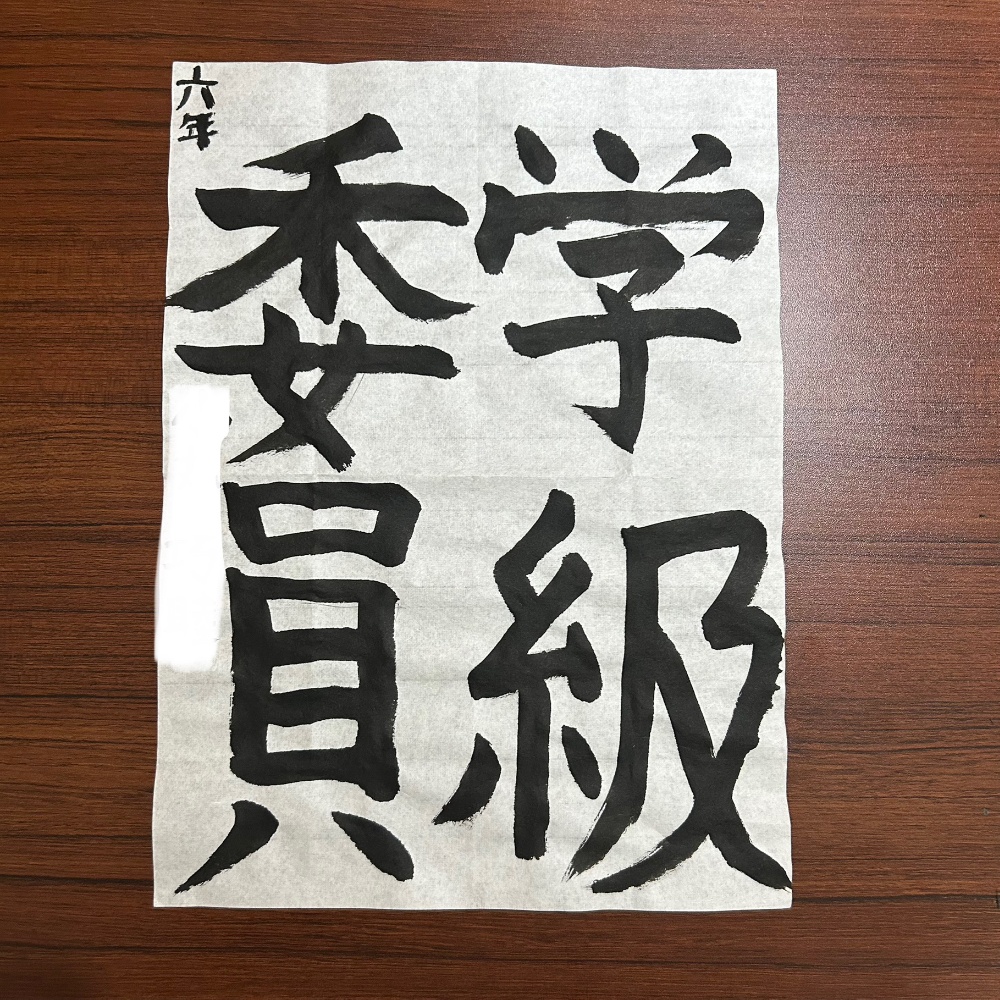 学級
委員
六年